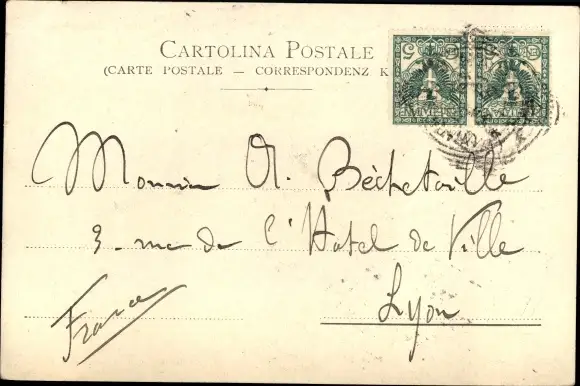 CARTOLINA POSTALE
(CARTE POSTALE — CORRESPONDENZ K
Monsieur A. Béchetoille
3. rue de l'Hotel de Ville
Lyon
France